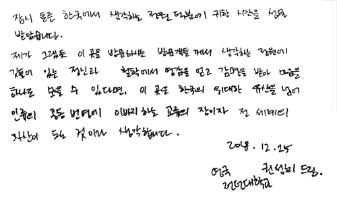 잠시 들른 한국에서 생각하는 정원 덕분에 귀한 시간을 선물
받았습니다.
제가 그랬듯 이 곳을 방문하시는 방문객들께서 생각하는 정원에
깃들어 있는 정신과 철학에서 영감을 얻고 감명을 받아 마음을
하나로 모을 수 있다면, 이 곳은 한국의 위대한 유산을 넘어
인류의 공동 번영에 이바지하는 교류의 장이자 전 세계의
자산이 되는 것이라 생각합니다.
12.25
영국 권성희 드림.
런던대학교